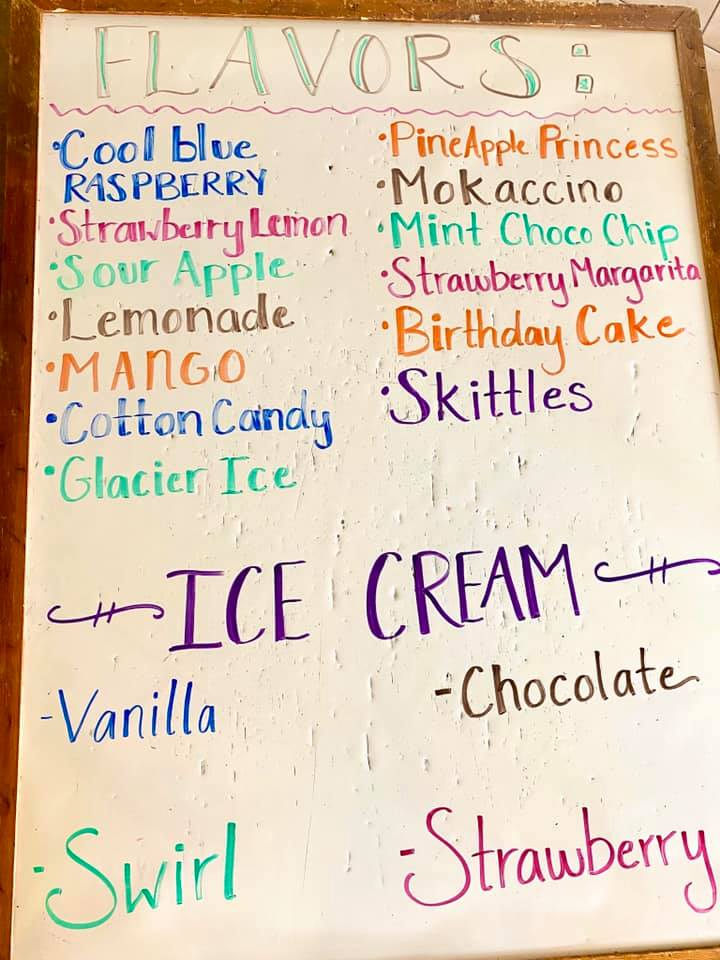 FLAVORS:
·Cool blue
RASPBERRY
·Strawberry Lemon
·Sour Apple
·Lemonade
·MANGO
·Cotton Candy
·Glacier Ice
·PineApple Princess
·Mokaccino
·Mint Choco Chip
·Strawberry Margarita
·Birthday Cake
·Skittles
ICE CREAM
-Vanilla
-Chocolate
-Swirl
-Strawberry